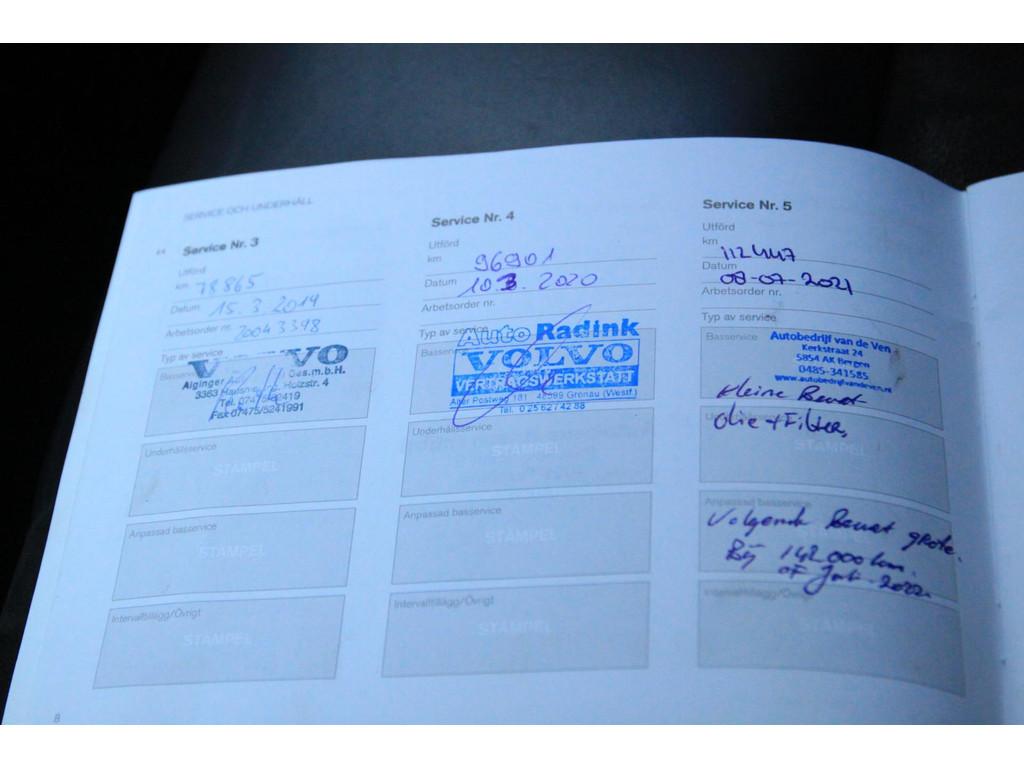 SERVICE OCH UNDERHÅLL
Service Nr. 3
Utförd
km 78865
Datum 15.3.2014
Arbetsorder nr. 20043398
Typ av service
Basservice
VOLVO
Aiginger Ges.m.b.H.
3363 Holzstr. 4
Tel. 07475/52419
Fax 07475/5241991
Underhållsservice
STÄMPEL
Anpassad basservice
STÄMPEL
Intervalltillägg/Övrigt
STÄMPEL
8
Service Nr. 4
Utförd
km 96901
Datum 10.3.2020
Arbetsorder nr.
Typ av service
Basservice
Auto Radink
VOLVO
VERTRAGSWERKSTATT
Alter Postweg 181 48599 Gronau (Westf.)
Tel. 02562/4288
Underhållsservice
STÄMPEL
Anpassad basservice
STÄMPEL
Intervalltillägg/Övrigt
STÄMPEL
Service Nr. 5
Utförd
km 112447
Datum 08-07-2021
Arbetsorder nr.
Typ av service
Basservice
Autobedrijf van de Ven
Kerkstraat 24
5854 AK Bergen
0485-341585
www.autobedrijfvandeven.nl
Kleine Beurt
Olie + Filter,
STÄMPEL
Anpassad basservice
Volgende Beurt grote.
Bij 142.000 km.
of Juli-2022.
Intervalltillägg/Övrigt
STÄMPEL